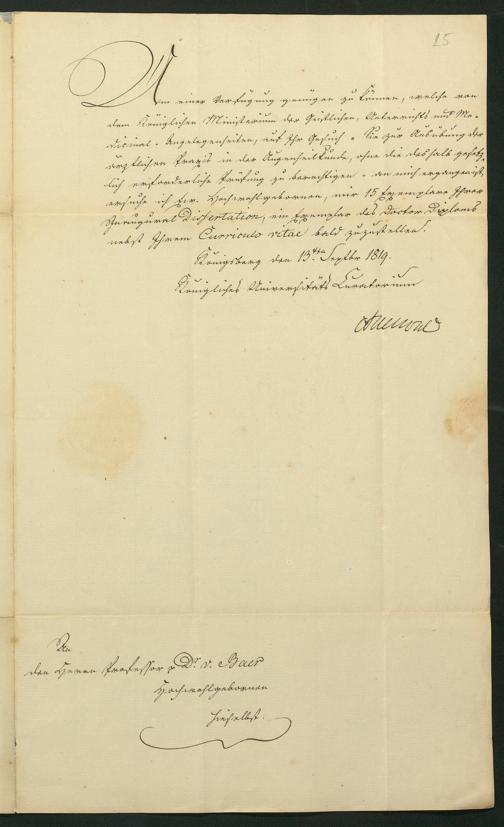 15
Um einer Verfügung genügen zu können, welche von
dem Königlichen Ministerium der Geistlichen, Unterrichts und Me-
dicinal-Angelegenheiten, auf Ihr Gesuch - Sie zur Ausübung der
ärztlichen Praxis in der Augenheilkunde, ohne die deshalb gesetz-
lich erforderliche Prüfung zu berechtigen - an mich ergangen ist,
ersuche ich Ew. Hochwohlgebornen, mir 15 Exemplare Ihrer
Inaugural Dissertation, ein Exemplar des Doctor Diploms
nebst Ihrem Curriculo vitae bald zuzustellen.
Königsberg den 13ten Septbr 1819.
Königliches Universitäts Curatorium
An
den Herrn Professor Dr. v. Baer
Hochwohlgebornen
hieselbst.